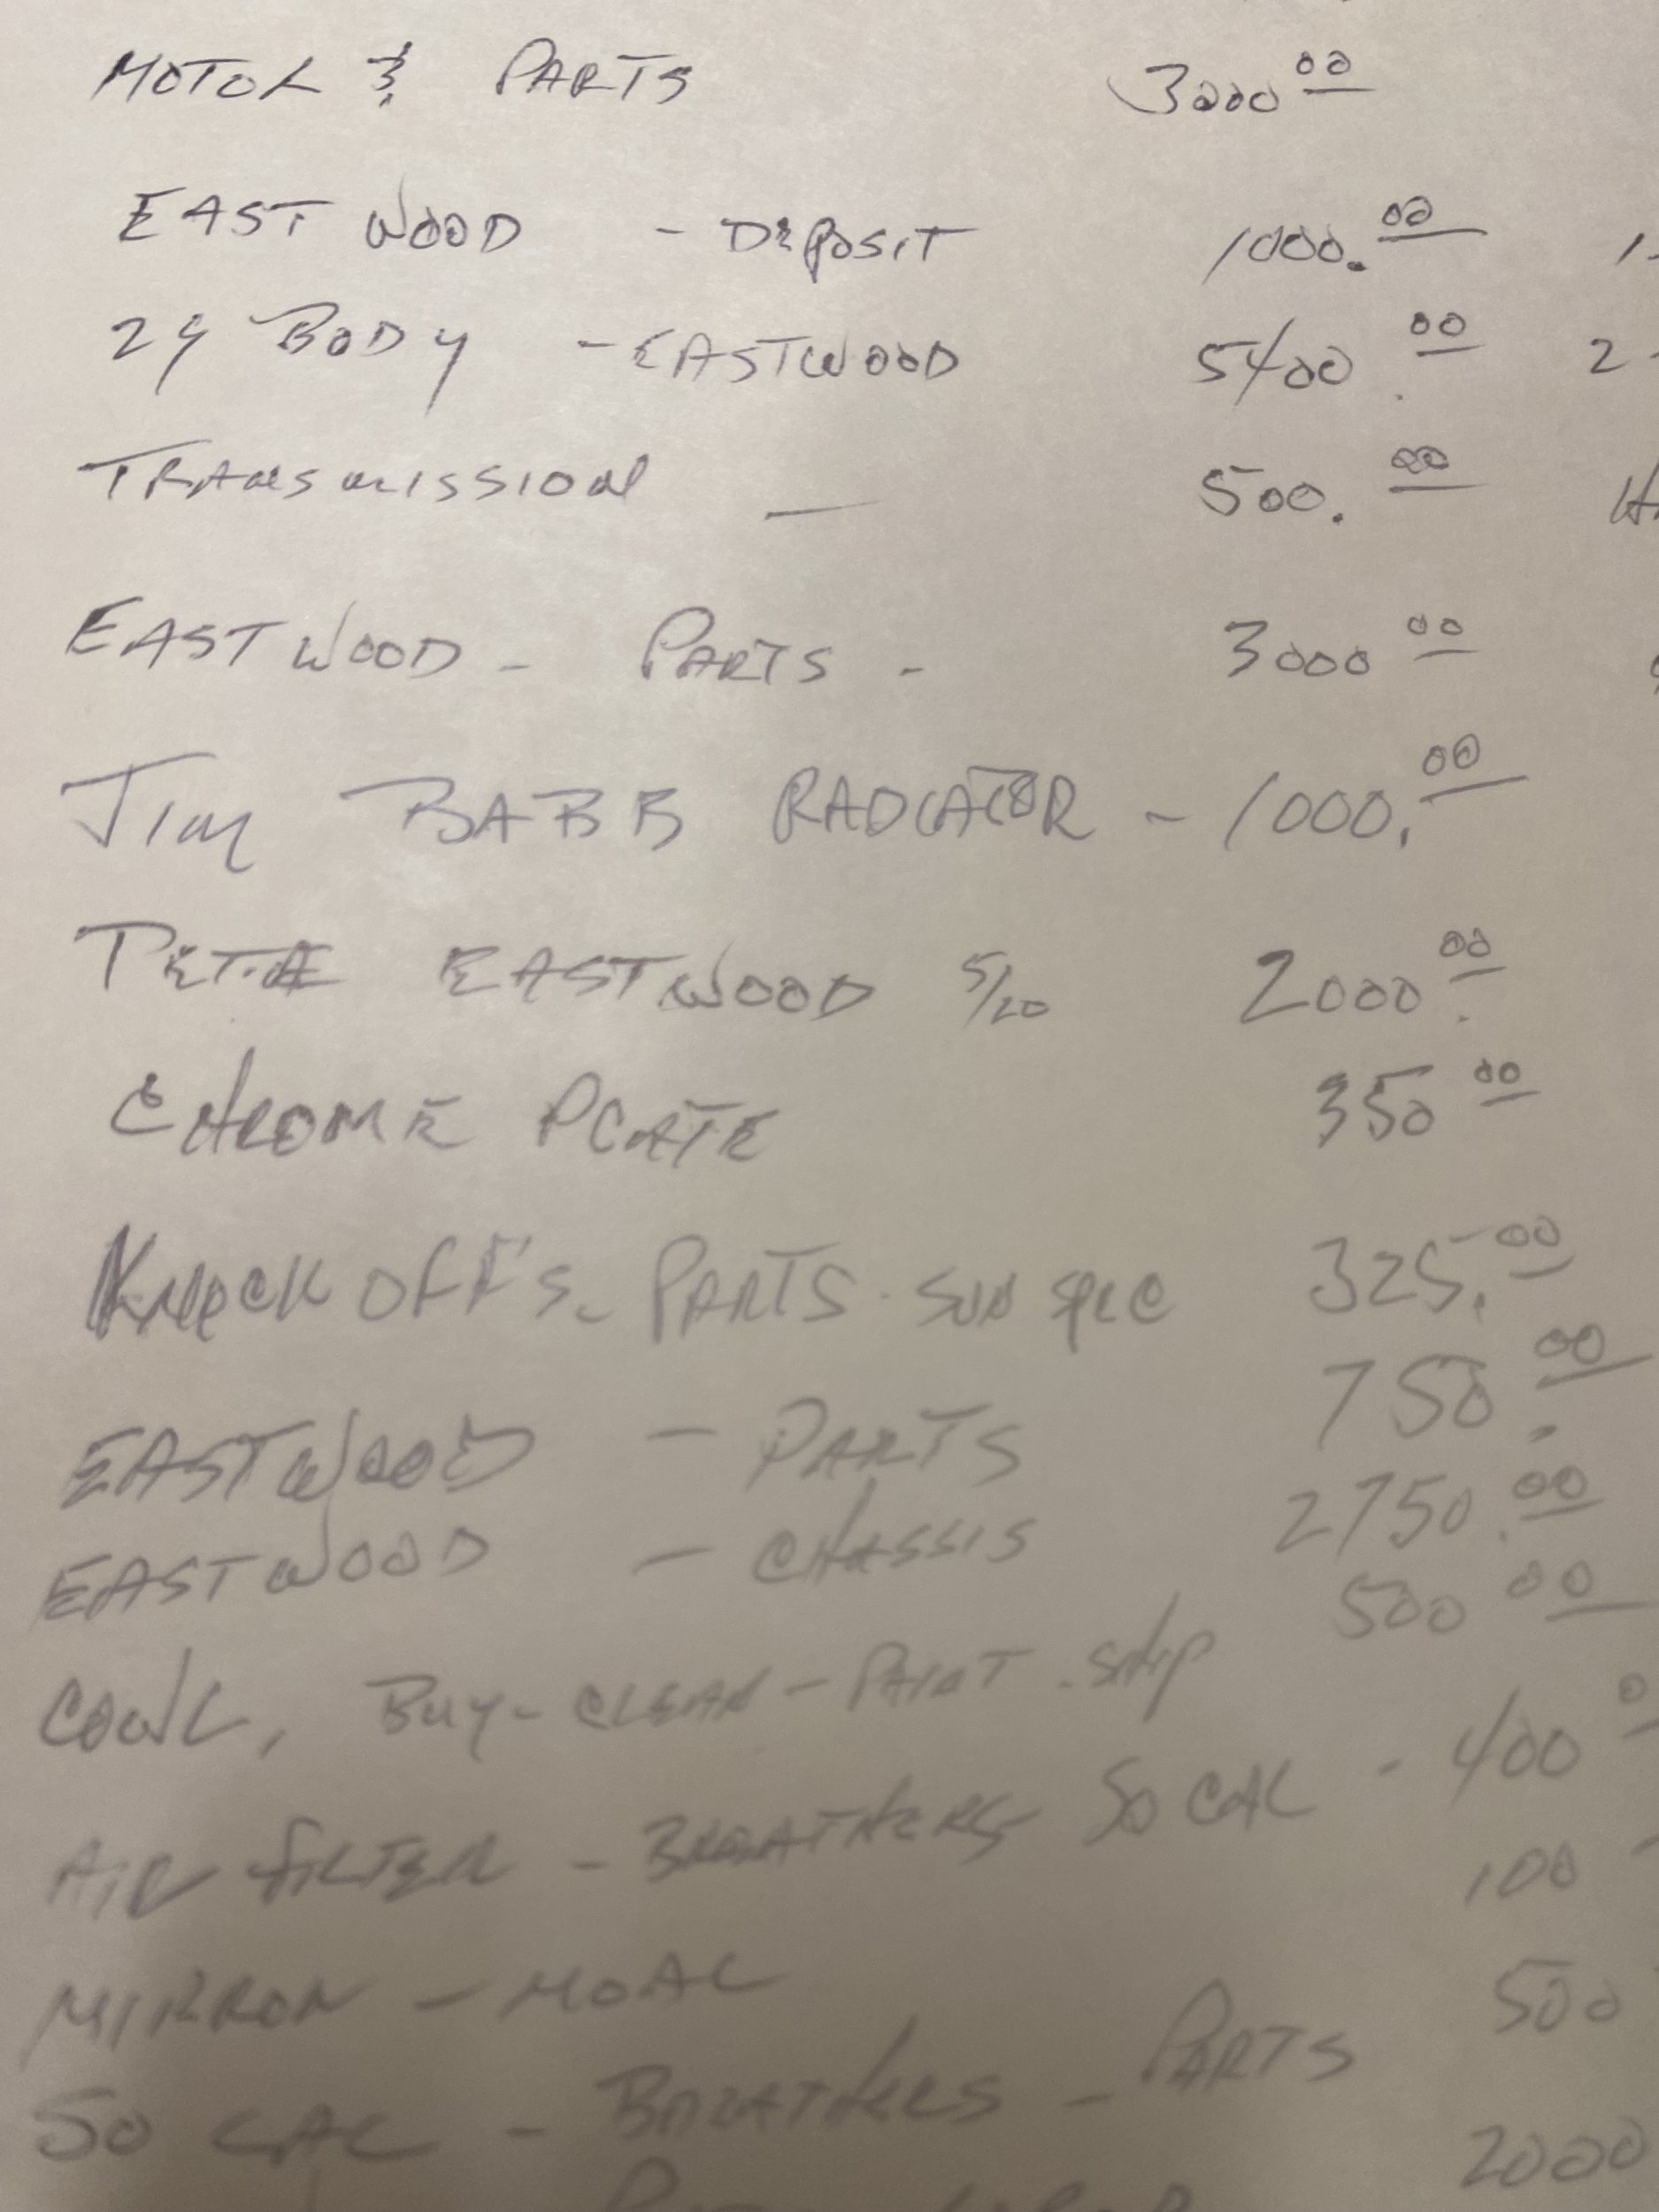 MOTOR & PARTS 3000 00
EASTWOOD - DEPOSIT 1000. 00 1-
29 BODY - EASTWOOD 5400. 00 2-
TRANSMISSION — 500. 00
EASTWOOD - PARTS - 3000 00
JIM BABB RADIATOR - 1000. 00
PETE EASTWOOD 5/20 2000. 00
CHROME PLATE 350 00
KNOCK OFF'S - PARTS - SUN SPEC 325. 00
EASTWOOD - PARTS 750. 00
EASTWOOD - CHASSIS 2750. 00
COWL, BUY - CLEAN - PAINT - SHIP 500 00
AIR FILTER - BREATHERS SO CAL - 400
MIRROR - 100
SO CAL - BREATHERS - PARTS 500
2000